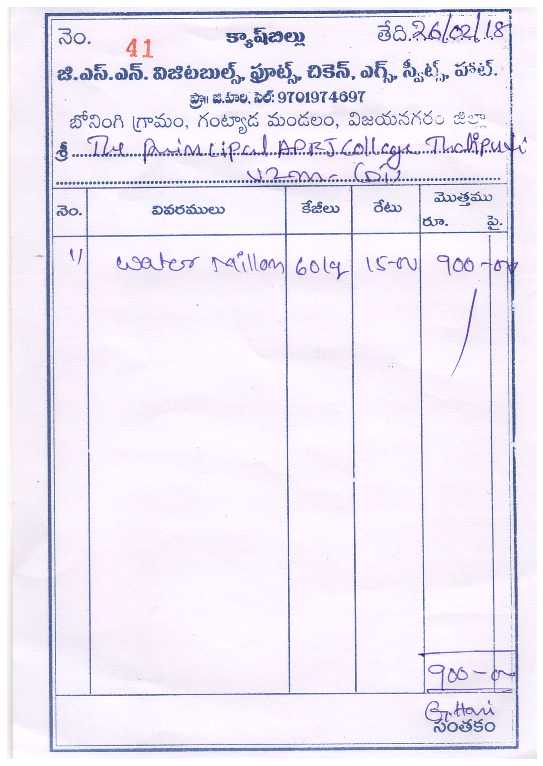 నెం. 41 క్యాష్‌బిల్లు తేది. 26/02/18
జి.ఎస్.ఎన్. విజిటబుల్స్, ఫ్రూట్స్, చికెన్, ఎగ్స్, స్వీట్స్, హాట్.
ప్రొ॥ జి.హరి, సెల్: 9701974697
బోనింగి గ్రామం, గంట్యాడ మండలం, విజయనగరం జిల్లా
శ్రీ The Principal APRJ College Thatipudi
VZM
నెం. వివరములు కేజీలు రేటు మొత్తము
రూ. పై.
1) water Millon 60kg 15-00 900-00
900-00
G. Hari
సంతకం